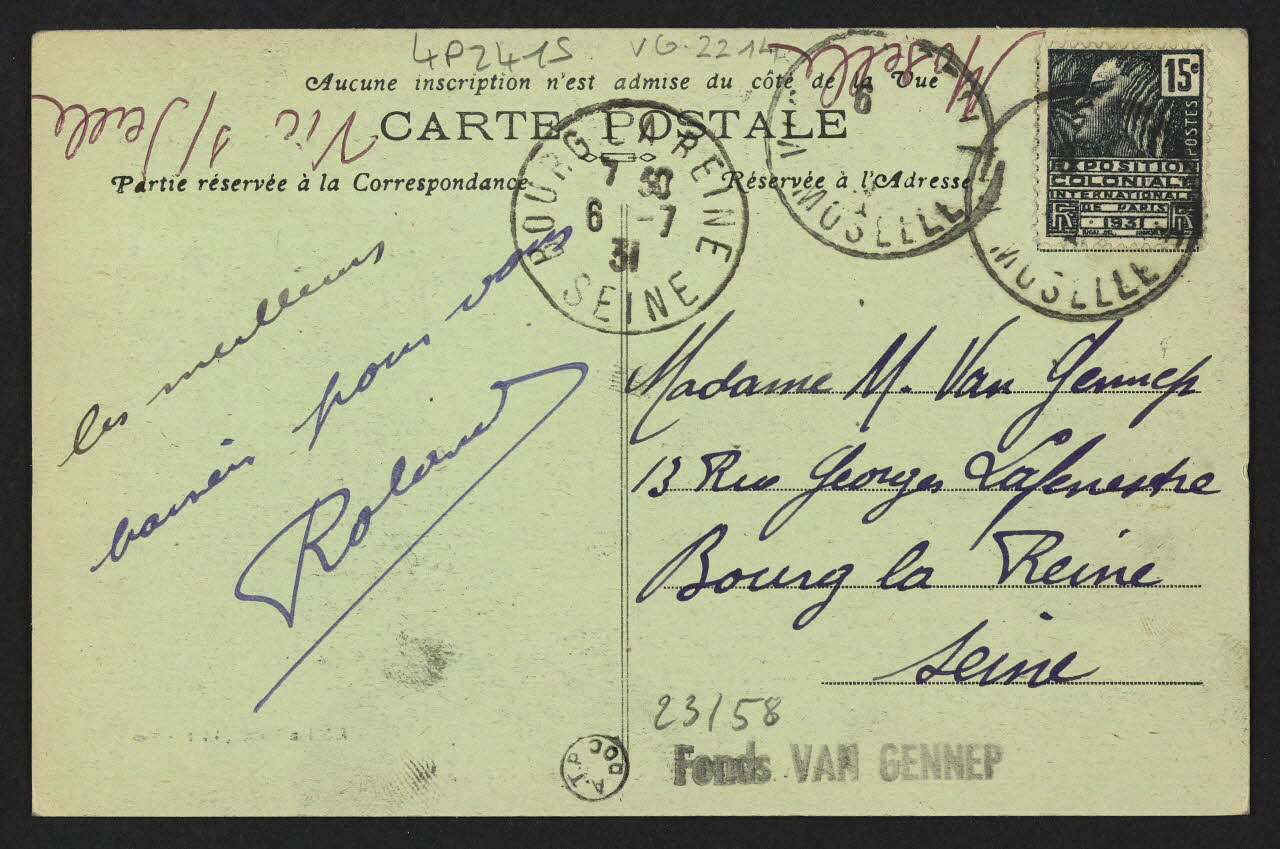 4P2415 VG.2214
Moselle
Aucune inscription n'est admise du côté de la Vue
Vic s/Seille
CARTE POSTALE
Partie réservée à la Correspondance
Réservée à l'Adresse
BOURG LA REINE
7 30
6 -7
31
SEINE
VIC
6
MOSELLE
MOSELLE
15c
POSTES
EXPOSITION
COLONIALE
INTERNATIONALE
DE PARIS
RF 1931 RF
les meilleurs
baisers pour vous
Roland
Madame M. Van Gennep
13 Rue Georges Lafenestre
Bourg la Reine
Seine
23/58
Fonds VAN GENNEP
DOC A.T.P.